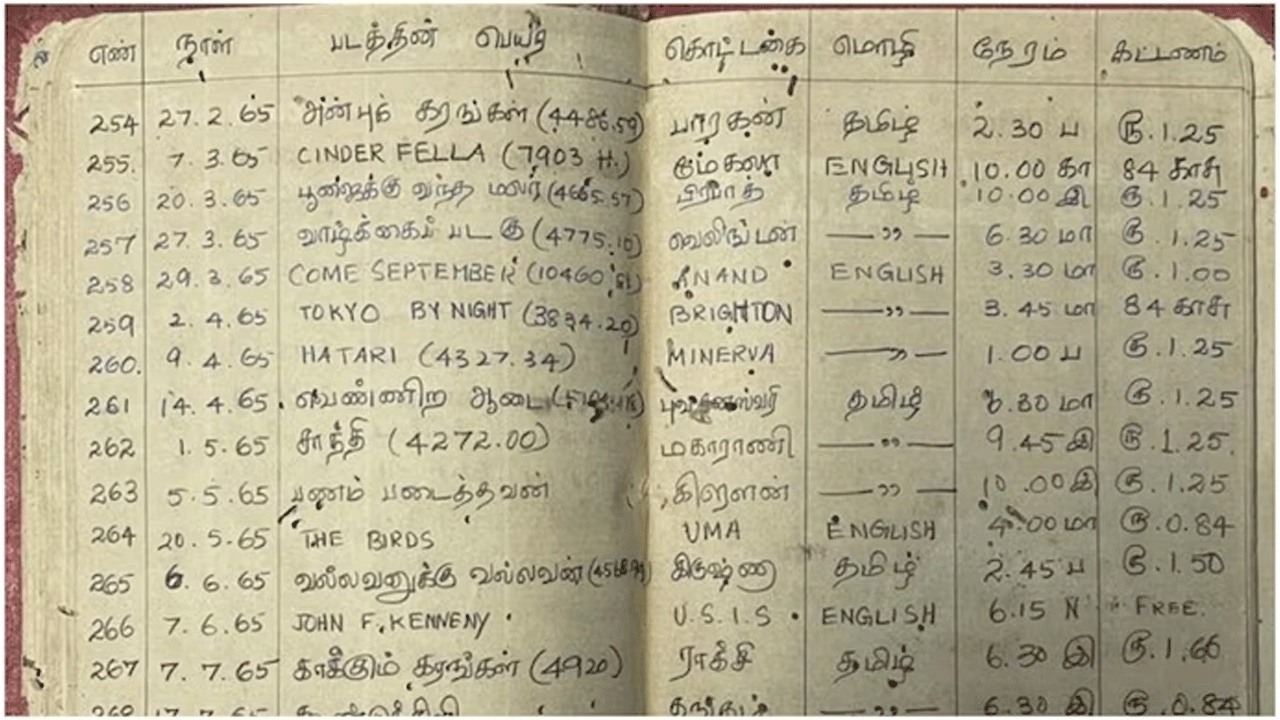 எண் நாள் படத்தின் பெயர் கொட்டகை மொழி நேரம் கட்டணம்
254 27.2.65 அன்புக் கரங்கள் (4486.59) பாரகன் தமிழ் 2.30 ப ரூ.1.25
255. 7.3.65 CINDER FELLA (7903 H.) மேகலா ENGLISH 10.00 கா 84 காசு
256 20.3.65 பூஜைக்கு வந்த மலர் (4665.57) பிரபாத் தமிழ் 10.00 இ ரூ.1.25
257 27.3.65 வாழ்க்கைப் படகு (4775.10) வெலிங்டன் —〃— 6.30 மா ரூ.1.25
258 29.3.65 COME SEPTEMBER (10460 ANAND ENGLISH 3.30 மா ரூ.1.00
259 2.4.65 TOKYO BY NIGHT (3834.20) BRIGHTON —〃— 3.45 மா 84 காசு
260. 9.4.65 HATARI (4327.34) MINERVA —〃— 1.00 ப ரூ.1.25
261 14.4.65 வெண்ணிற ஆடை புவனேஸ்வரி தமிழ் 6.30 மா ரூ.1.25
262 1.5.65 சாந்தி (4272.00) மகாராணி —〃— 9.45 இ ரூ.1.25
263 5.5.65 பணம் படைத்தவன் கிரௌன் —〃— 10.00 இ ரூ.1.25
264 20.5.65 THE BIRDS UMA ENGLISH 4.00 மா ரூ.0.84
265 6.6.65 வல்லவனுக்கு வல்லவன் கிருஷ்ணா தமிழ் 2.45 ப ரூ.1.50
266 7.6.65 JOHN F. KENNENY U.S.I.S ENGLISH 6.15 N FREE.
267 7.7.65 காக்கும் கரங்கள் (4920) ராக்சி தமிழ் 6.30 இ ரூ.1.66
—〃— 6.30 இ ரூ.0.84